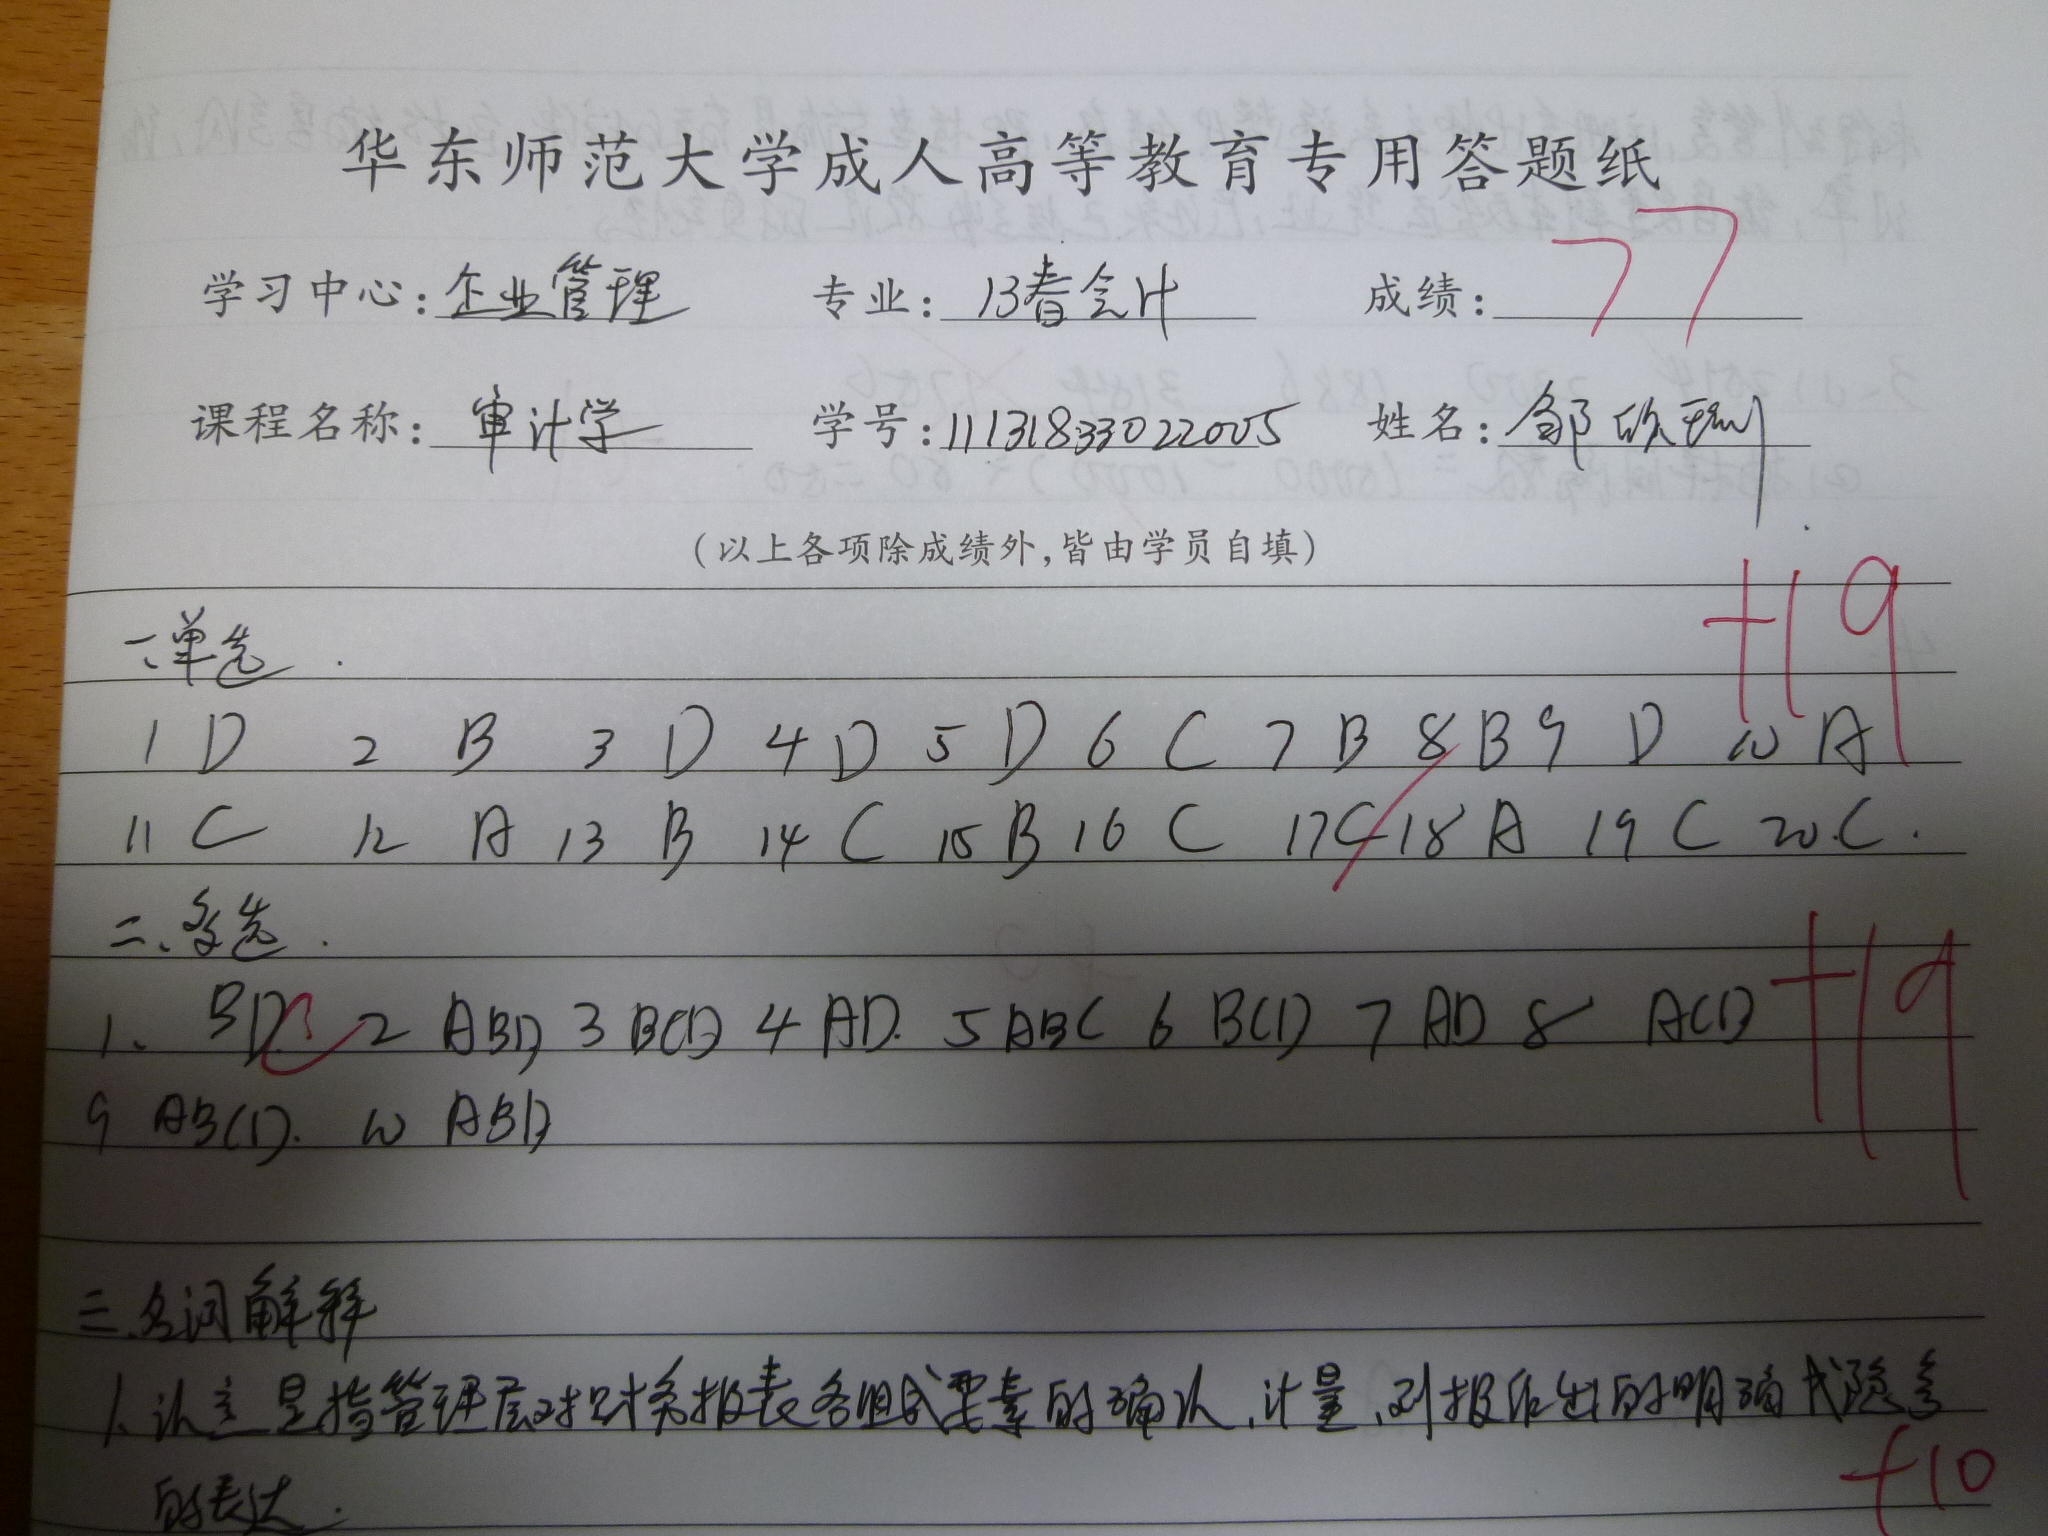 华东师范大学成人高等教育专用答题纸
学习中心:企业管理 专业:13春会计 成绩:77
课程名称:审计学 学号:11131833022005 姓名:邹欣
(以上各项除成绩外,皆由学员自填)
+19
一、单选.
1 D 2 B 3 D 4 D 5 D 6 C 7 B 8 B 9 D 10 A
11 C 12 A 13 B 14 C 15 B 16 C 17 C 18 A 19 C 20.C.
二、多选.
+19
1、BD. 2 ABD 3 BCD 4 AD. 5 ABC 6 BCD 7 AD 8 ACD
9 ABCD. 10 ABD
三、名词解释
1、认定是指管理层对财务报表各组成要素的确认、计量、列报作出的明确或隐含
的表达.
+10